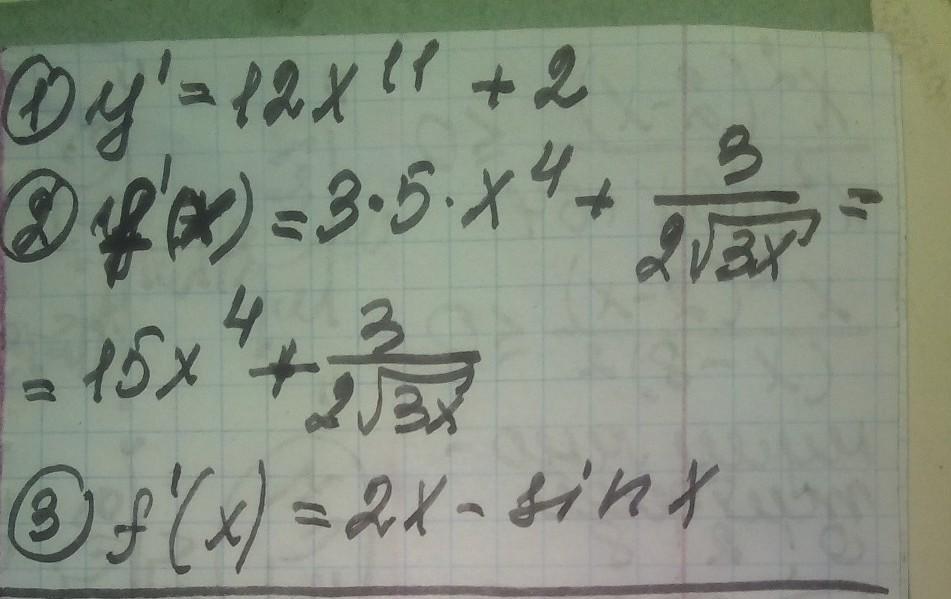 ① y' = 12x¹¹ + 2
② f'(x) = 3·5·x⁴ + 3/(2√(3x)) =
= 15x⁴ + 3/(2√(3x))
③ f'(x) = 2x - sin x